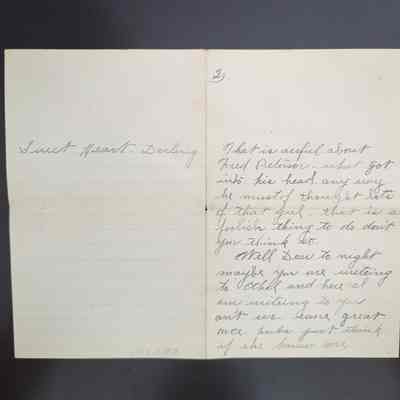 Sweet Heart - Darling
2)
That is awful about
Fred Peterson - what got
into his head any way
he must of thought lots
of that girl - that is a
foolish thing to do don't
you think so.
Well Dear to night
maybe you are writeing
to Ethel and here I
am writeing to you
ain't we some great
once just think
if she knew we